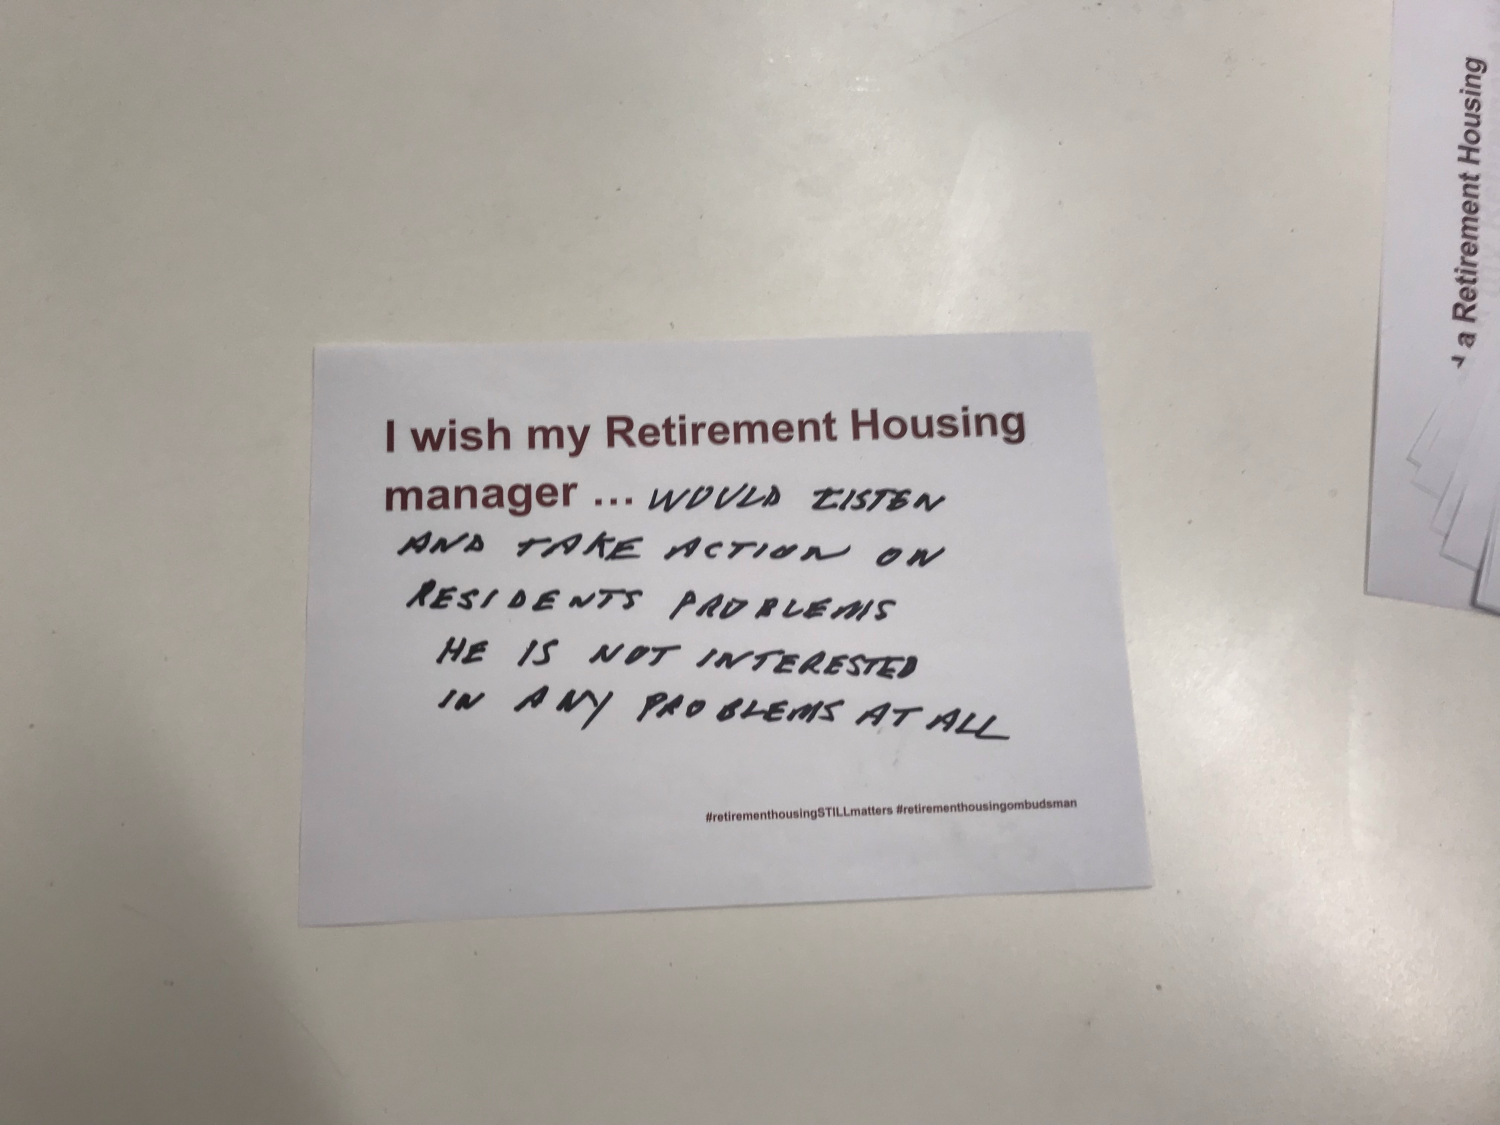 I wish my Retirement Housing
manager ... WOULD LISTEN
AND TAKE ACTION ON
RESIDENTS PROBLEMS
HE IS NOT INTERESTED
IN ANY PROBLEMS AT ALL
#retirementhousingSTILLmatters #retirementhousingombudsman
a Retirement Housing